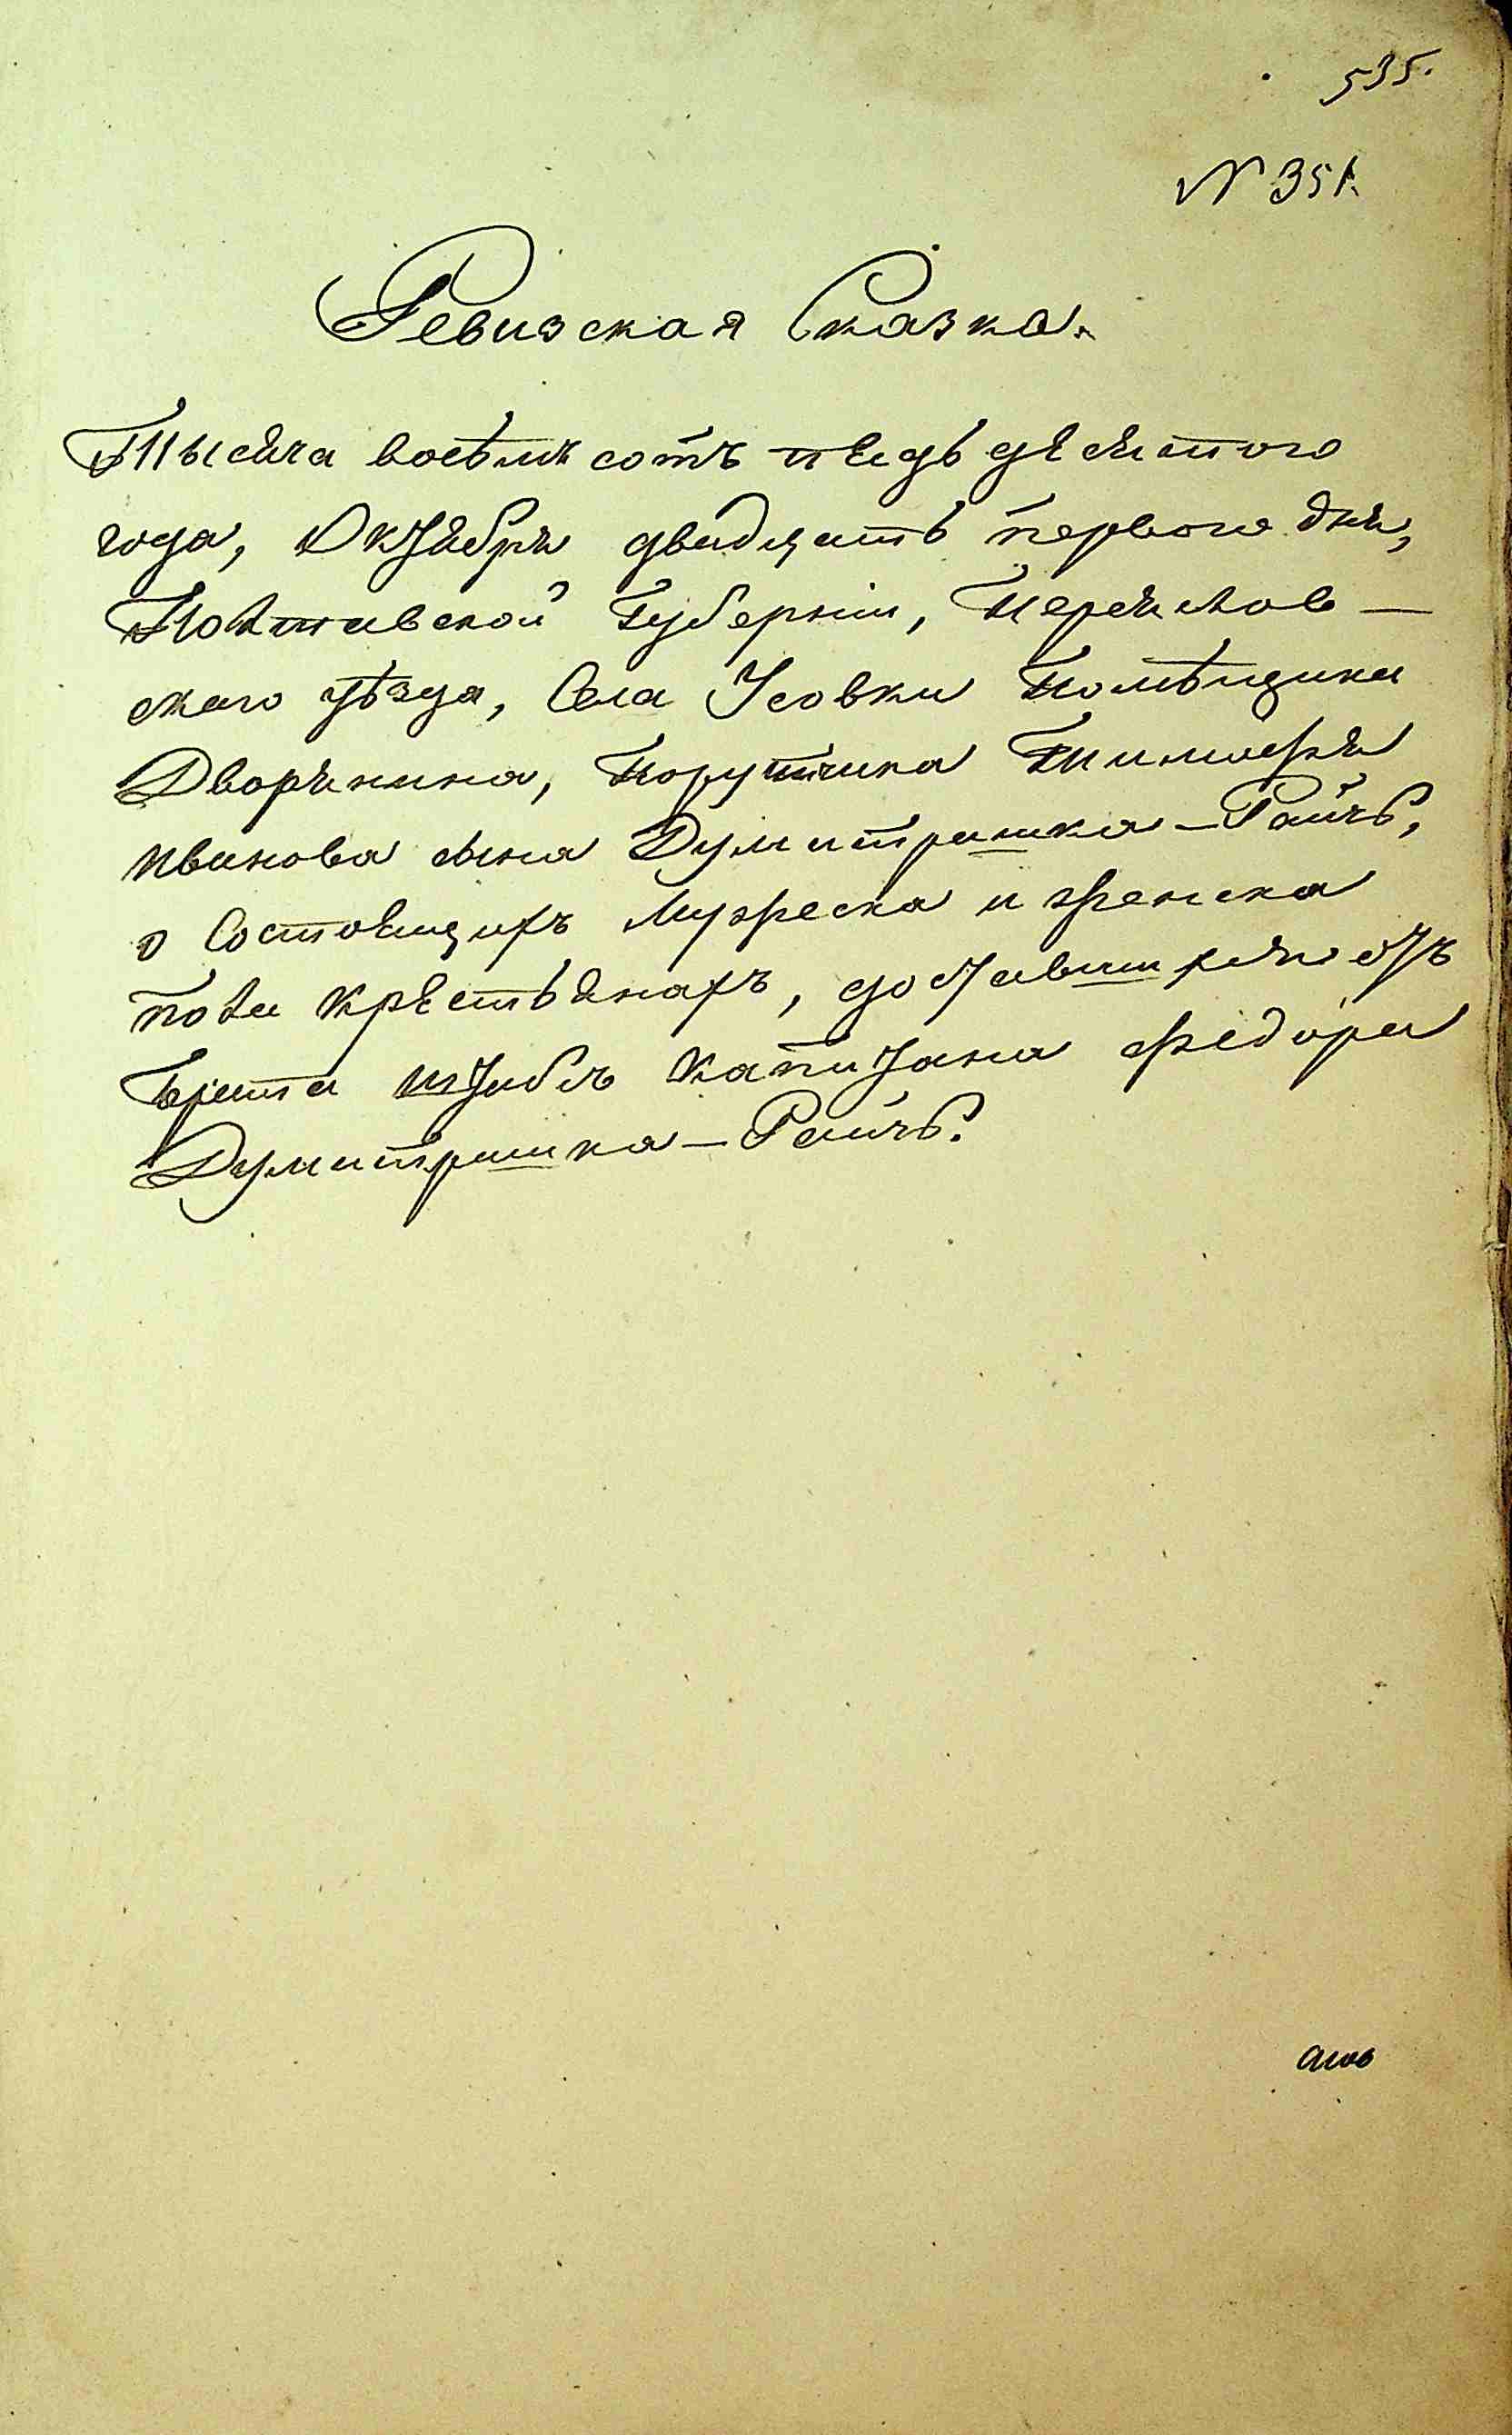 535.
N 351.
Ревизская Сказка.
Тысяча восѣмь сотъ пѣдьдѣсятого
года, Октября двадцать первого дня,
Полтавской Губерніи, Переяслов—
скаго уѣзда, Села Усовки Помѣщика
Дворянина, Порутчика Тимофея
Иванова сына Думитрашка—Раичъ,
о Состоящихъ мужеска и женска
пола крѣстьянахъ, доставшихся отъ
брата штабсъ капитана Федора
Думитрашка—Раичъ.